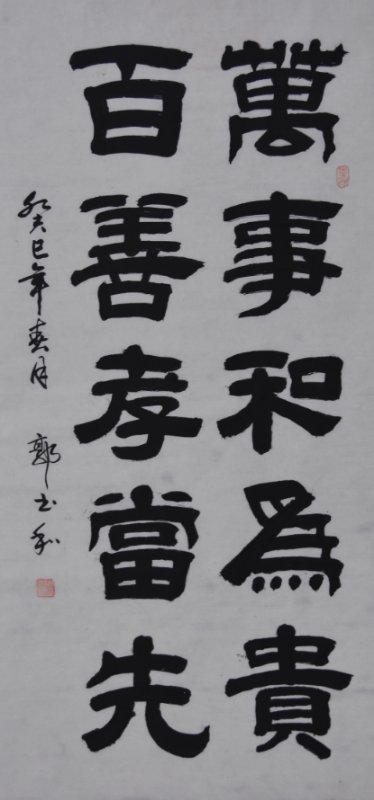 萬事和為貴
百善孝當先
癸巳年春月 郭玉和